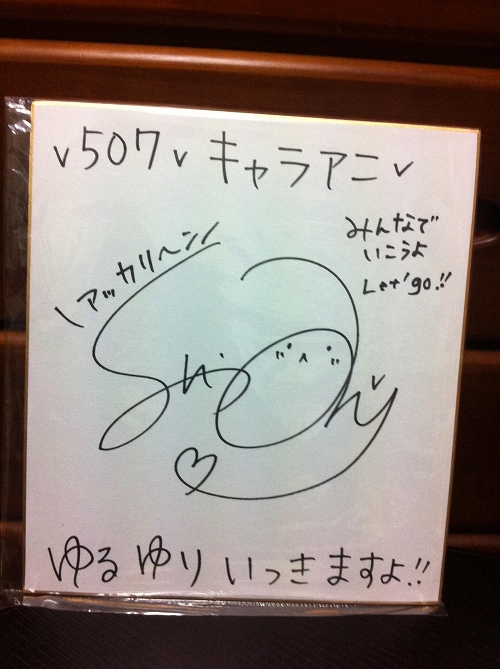 ✓507✓ キャラアニ✓
みんなで
いこうよ
Let'go.!!
\アッカリ～ン/
ゆるゆり いっきますよ.!!